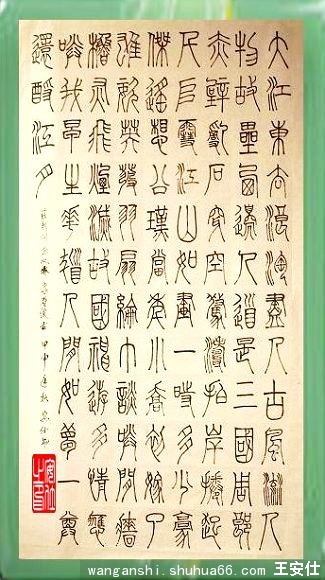 大江東去浪淘盡千古風流人
物故壘西邊人道是三國周郎
赤壁亂石穿空驚濤拍岸捲起
千堆雪江山如畫一時多少豪
傑遙想公瑾當年小喬初嫁了
雄姿英發羽扇綸巾談笑間檣
櫓灰飛煙滅故國神遊多情應
笑我早生華髮人間如夢一尊
還酹江月
甲申
wanganshi.shuhua66.com 王安仕